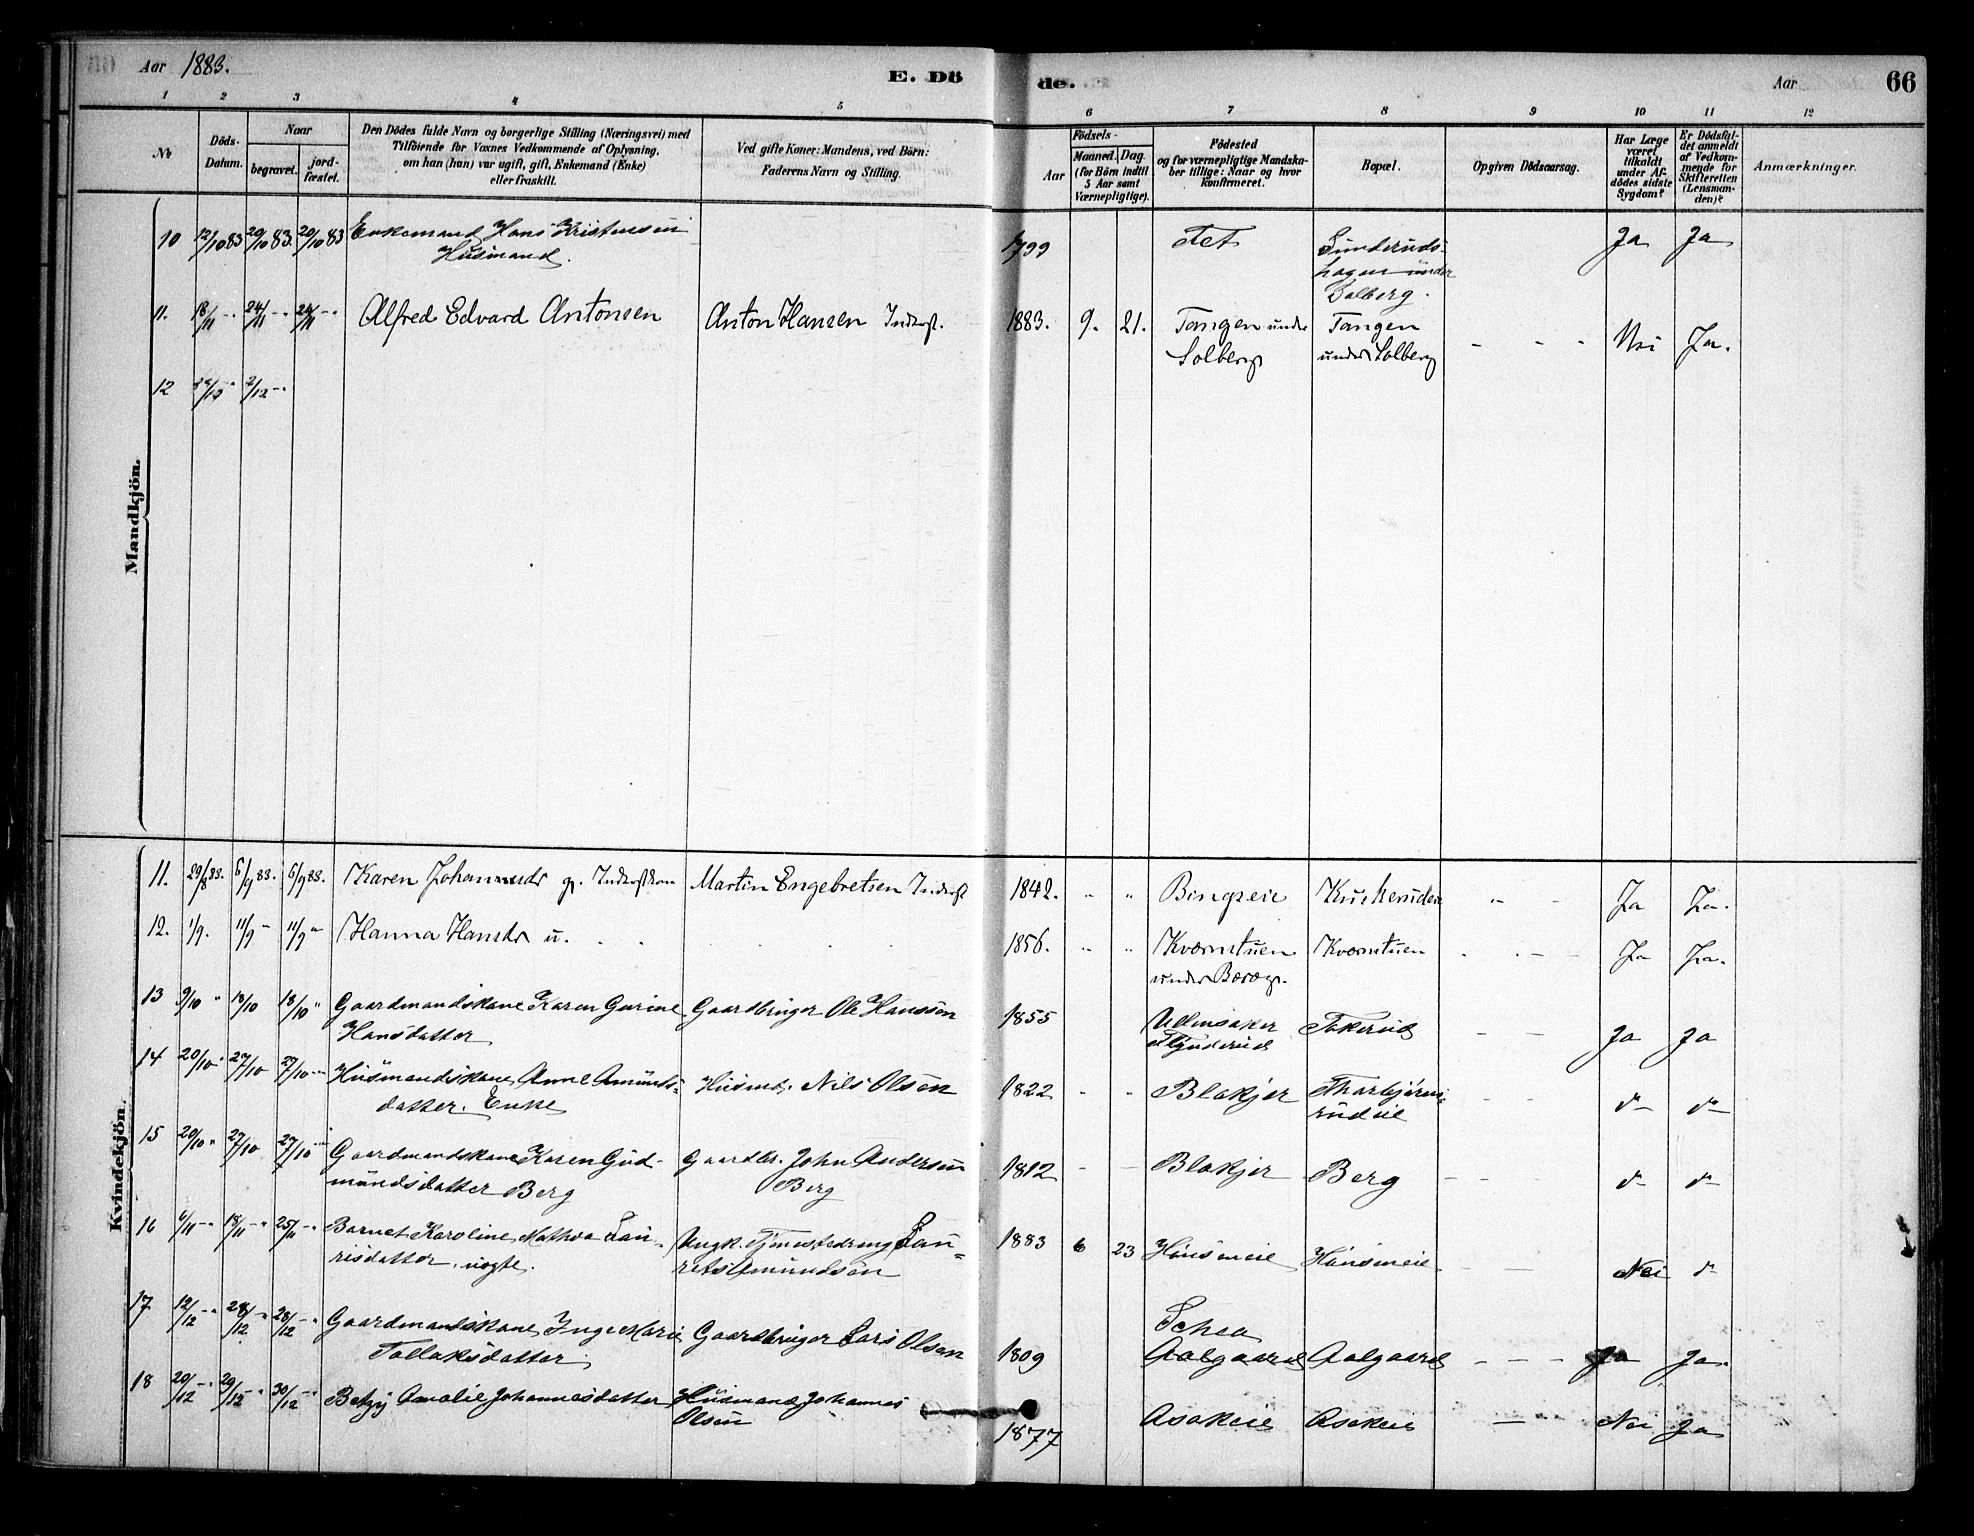 Aar 1883.
E. Dö
de.
Aar
66
1 2 3 4 5 6 7 8 9 10 11 12
No
Döds-
Datum.
Naar
begravet.
jord-
fæstet.
Den Dödes fulde Navn og borgerlige Stilling (Næringsvei) med
Tilföiende for Voxnes Vedkommende af Oplysning,
om han (hun) var ugift, gift, Enkemand (Enke)
eller fraskilt.
Ved gifte Koner: Mandens, ved Börn:
Faderens Navn og Stilling.
Födsels-
Aar
Maaned. Dag.
(for Børn indtil
5 Aar samt
Værnepligtige).
Födested
og for værnepligtige Mandska-
ber tillige: Naar og hvor
konfirmeret.
Bopæl.
Opgiven Dödsaarsag.
Har Læge
været
tilkaldt
under Af-
dödes sidste
Sygdom?
Er Dödsfal-
det anmeldt
af Vedkom-
mende for
Skifteretten
(Lensman-
den)?
Anmærkninger.
Mandkjön.
10 12/10 83 20/10 83. 20/10 83 Enkemand Hans Kristensen 1799 Fet Ja Ja
Husmand.
hagen under
11. 18/11 -"- 24/11 -"- 24/11 -"- Alfred Edvard Antonsen Anton Hansen Inderst. 1883. 9. 21. Tangen under Tangen - - - Nei Ja.
Solberg under Solberg
12 2/12 -"-
Kvindekjön.
11. 29/8 83. 6/9 83. 6/9 83. Karen Johannesdr g. Martin Engebretsen Inderst 1842. " " Bingseie Ja Ja.
12. 1/9. 11/9 " 11/9 " Hanna Hansdr u. 1856. " " Kværnstuen Kværnstuen Ja Ja.
under
13 9/10 " 18/10 18/10 " Gaardmandskone Karen Gurine Gaardbruger Ole Hanssen 1855 Ullensaker Takerud - - Ja Ja
Hansdatter
14 20/10 " 27/10 27/10 -"- Husmandskone Anne Amunds- Husmd. Nils Olsen 1822 - " Blakjer Thorbjörns- - - do do
datter. Enke rudeie
15 20/10 " 27/10 27/10 -"- Gaardmandskone Karen Gud- Gaardbr. John Andersen 1812 - - Blakjer Berg - - - do do
mundsdatter Berg Berg
16 6/11 -"- 18/11 -" 25/11 -"- Barnet Karoline Mathea Lau- Ungk. Tjenestedreng Lau- 1883 6 23 - - Nei do
risdatter, uægte. rits Amundsen
17 12/12 -"- 28/12 -" 28/12 -"- Gaardmandskone Inge Marie Gaardbruger Lars Olsen 1809 Aalgaard Aalgaard - - - Ja Ja.
Tollaksdatter
18 20/12 -"- 29/12 -" 30/12 -"- Betzy Amalie Johannesdatter Husmand Johannes 1877 Asakeie Asakeie - Nei Ja
Olsen